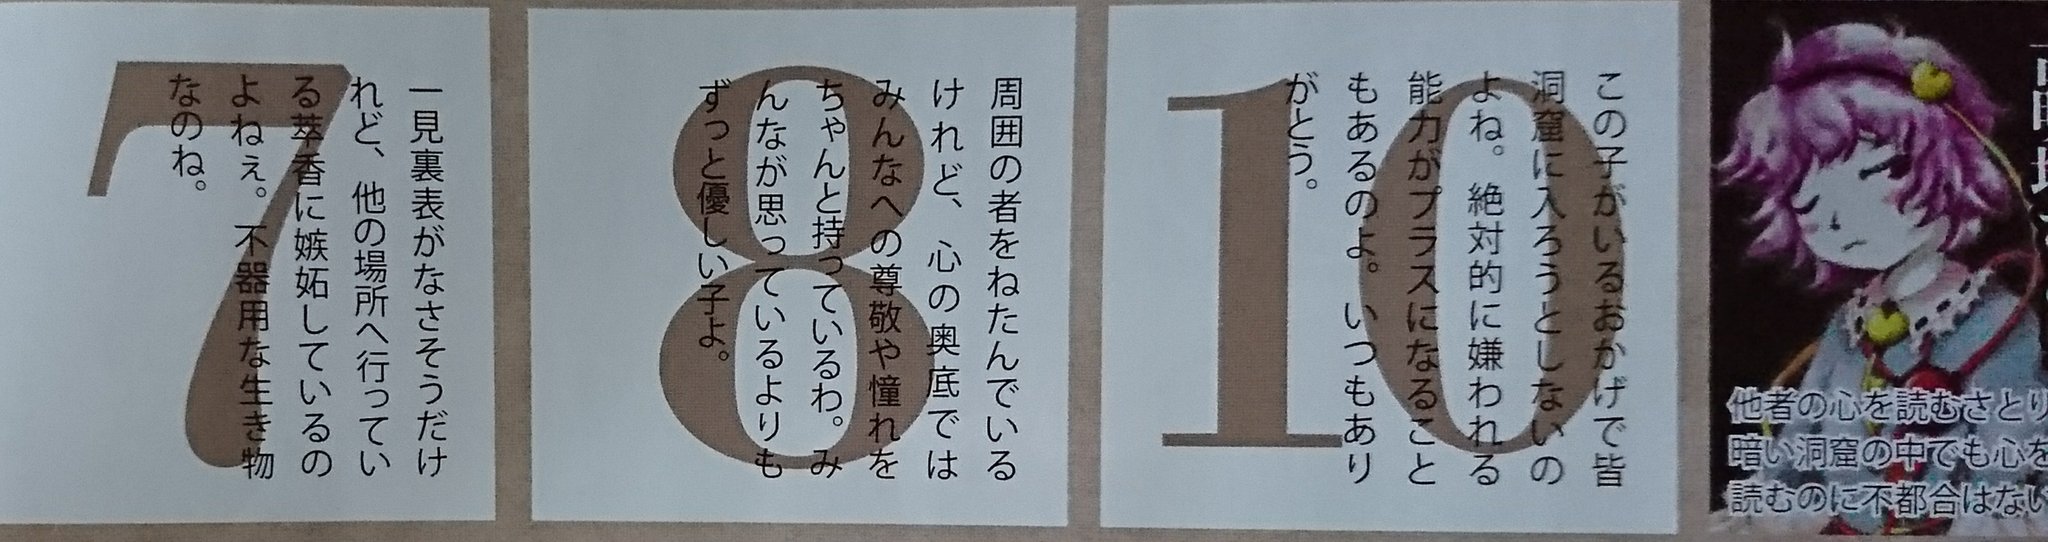 この子がいるおかげで皆
洞窟に入ろうとしないの
よね。絶対的に嫌われる
能力がプラスになること
もあるのよ。いつもあり
がとう。
10
周囲の者をねたんでいる
けれど、心の奥底では
みんなへの尊敬や憧れを
ちゃんと持っているわ。み
んなが思っているよりも
ずっと優しい子よ。
8
一見裏表がなさそうだけ
れど、他の場所へ行ってい
る萃香に嫉妬しているの
よねぇ。不器用な生き物
なのね。
7
他者の心を読むさとり
暗い洞窟の中でも心を
読むのに不都合はない